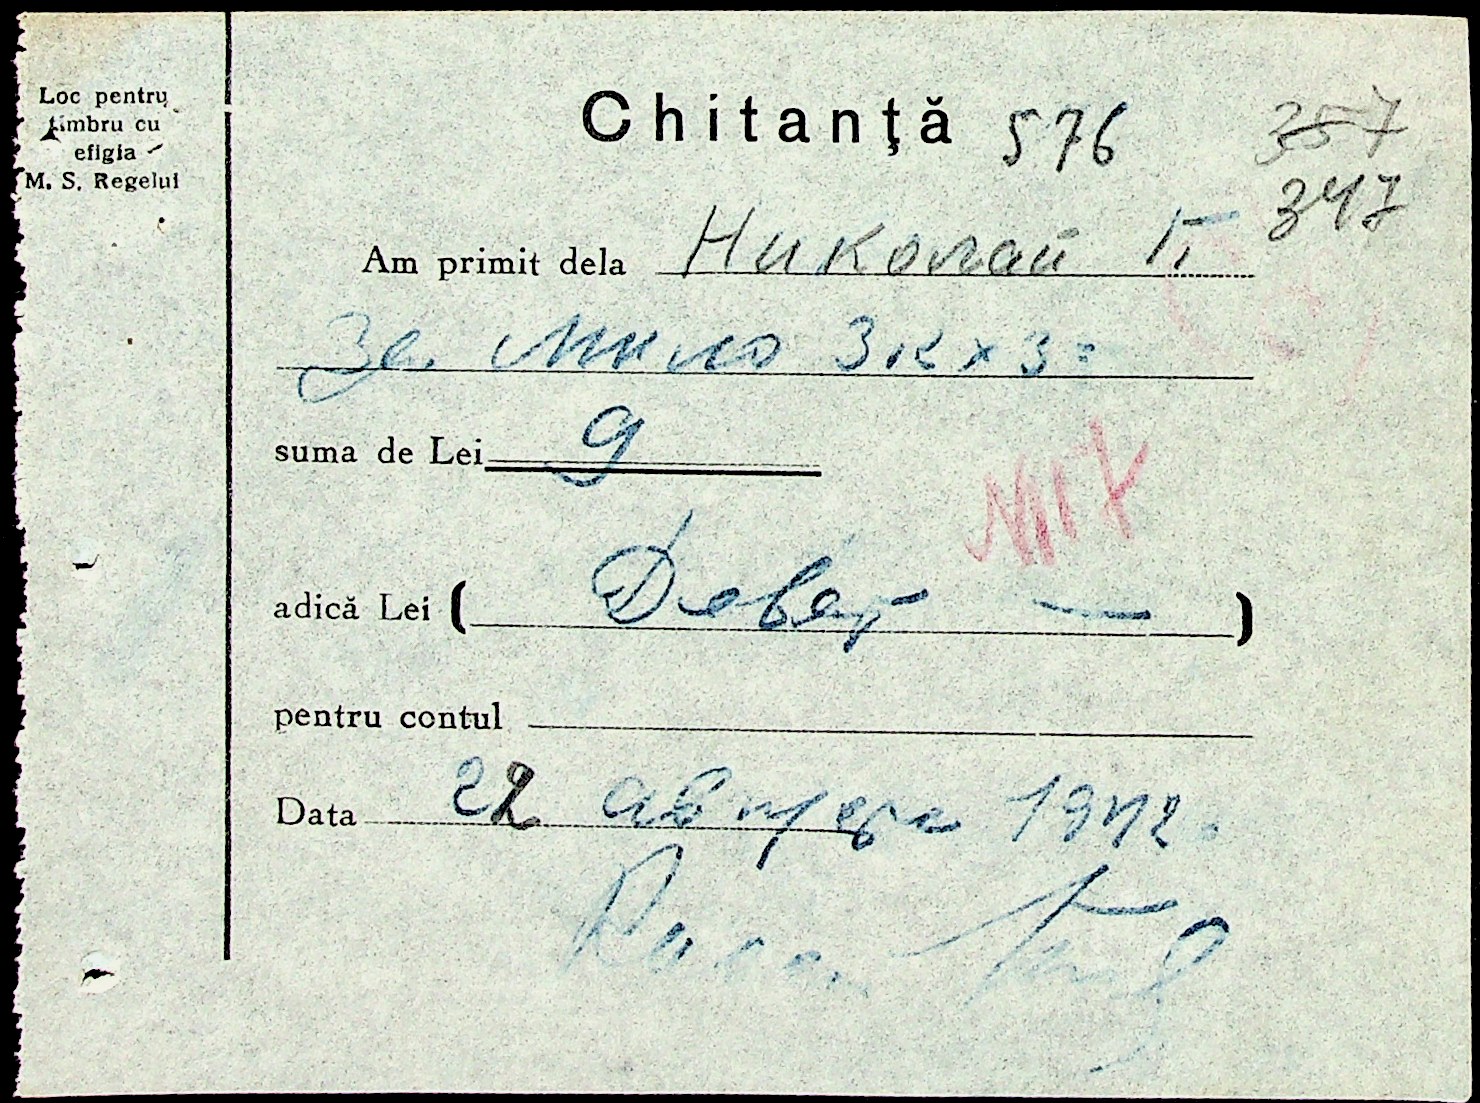 Loc pentru
timbru cu
efigia
M. S. Regelui
Chitanţă 576
357
347
Am primit dela Николай П
За Мило 3 к х 3 =
suma de Lei 9
N17
adică Lei ( Девет — )
pentru contul
Data 22 августа 1942.